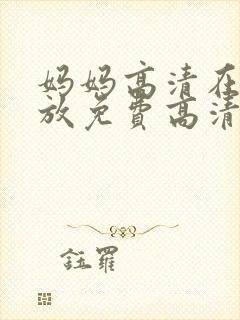 妈妈高清在
放免费高清
钰羅